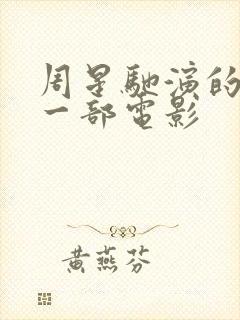 周星馳演的
一部電影
黃燕芬